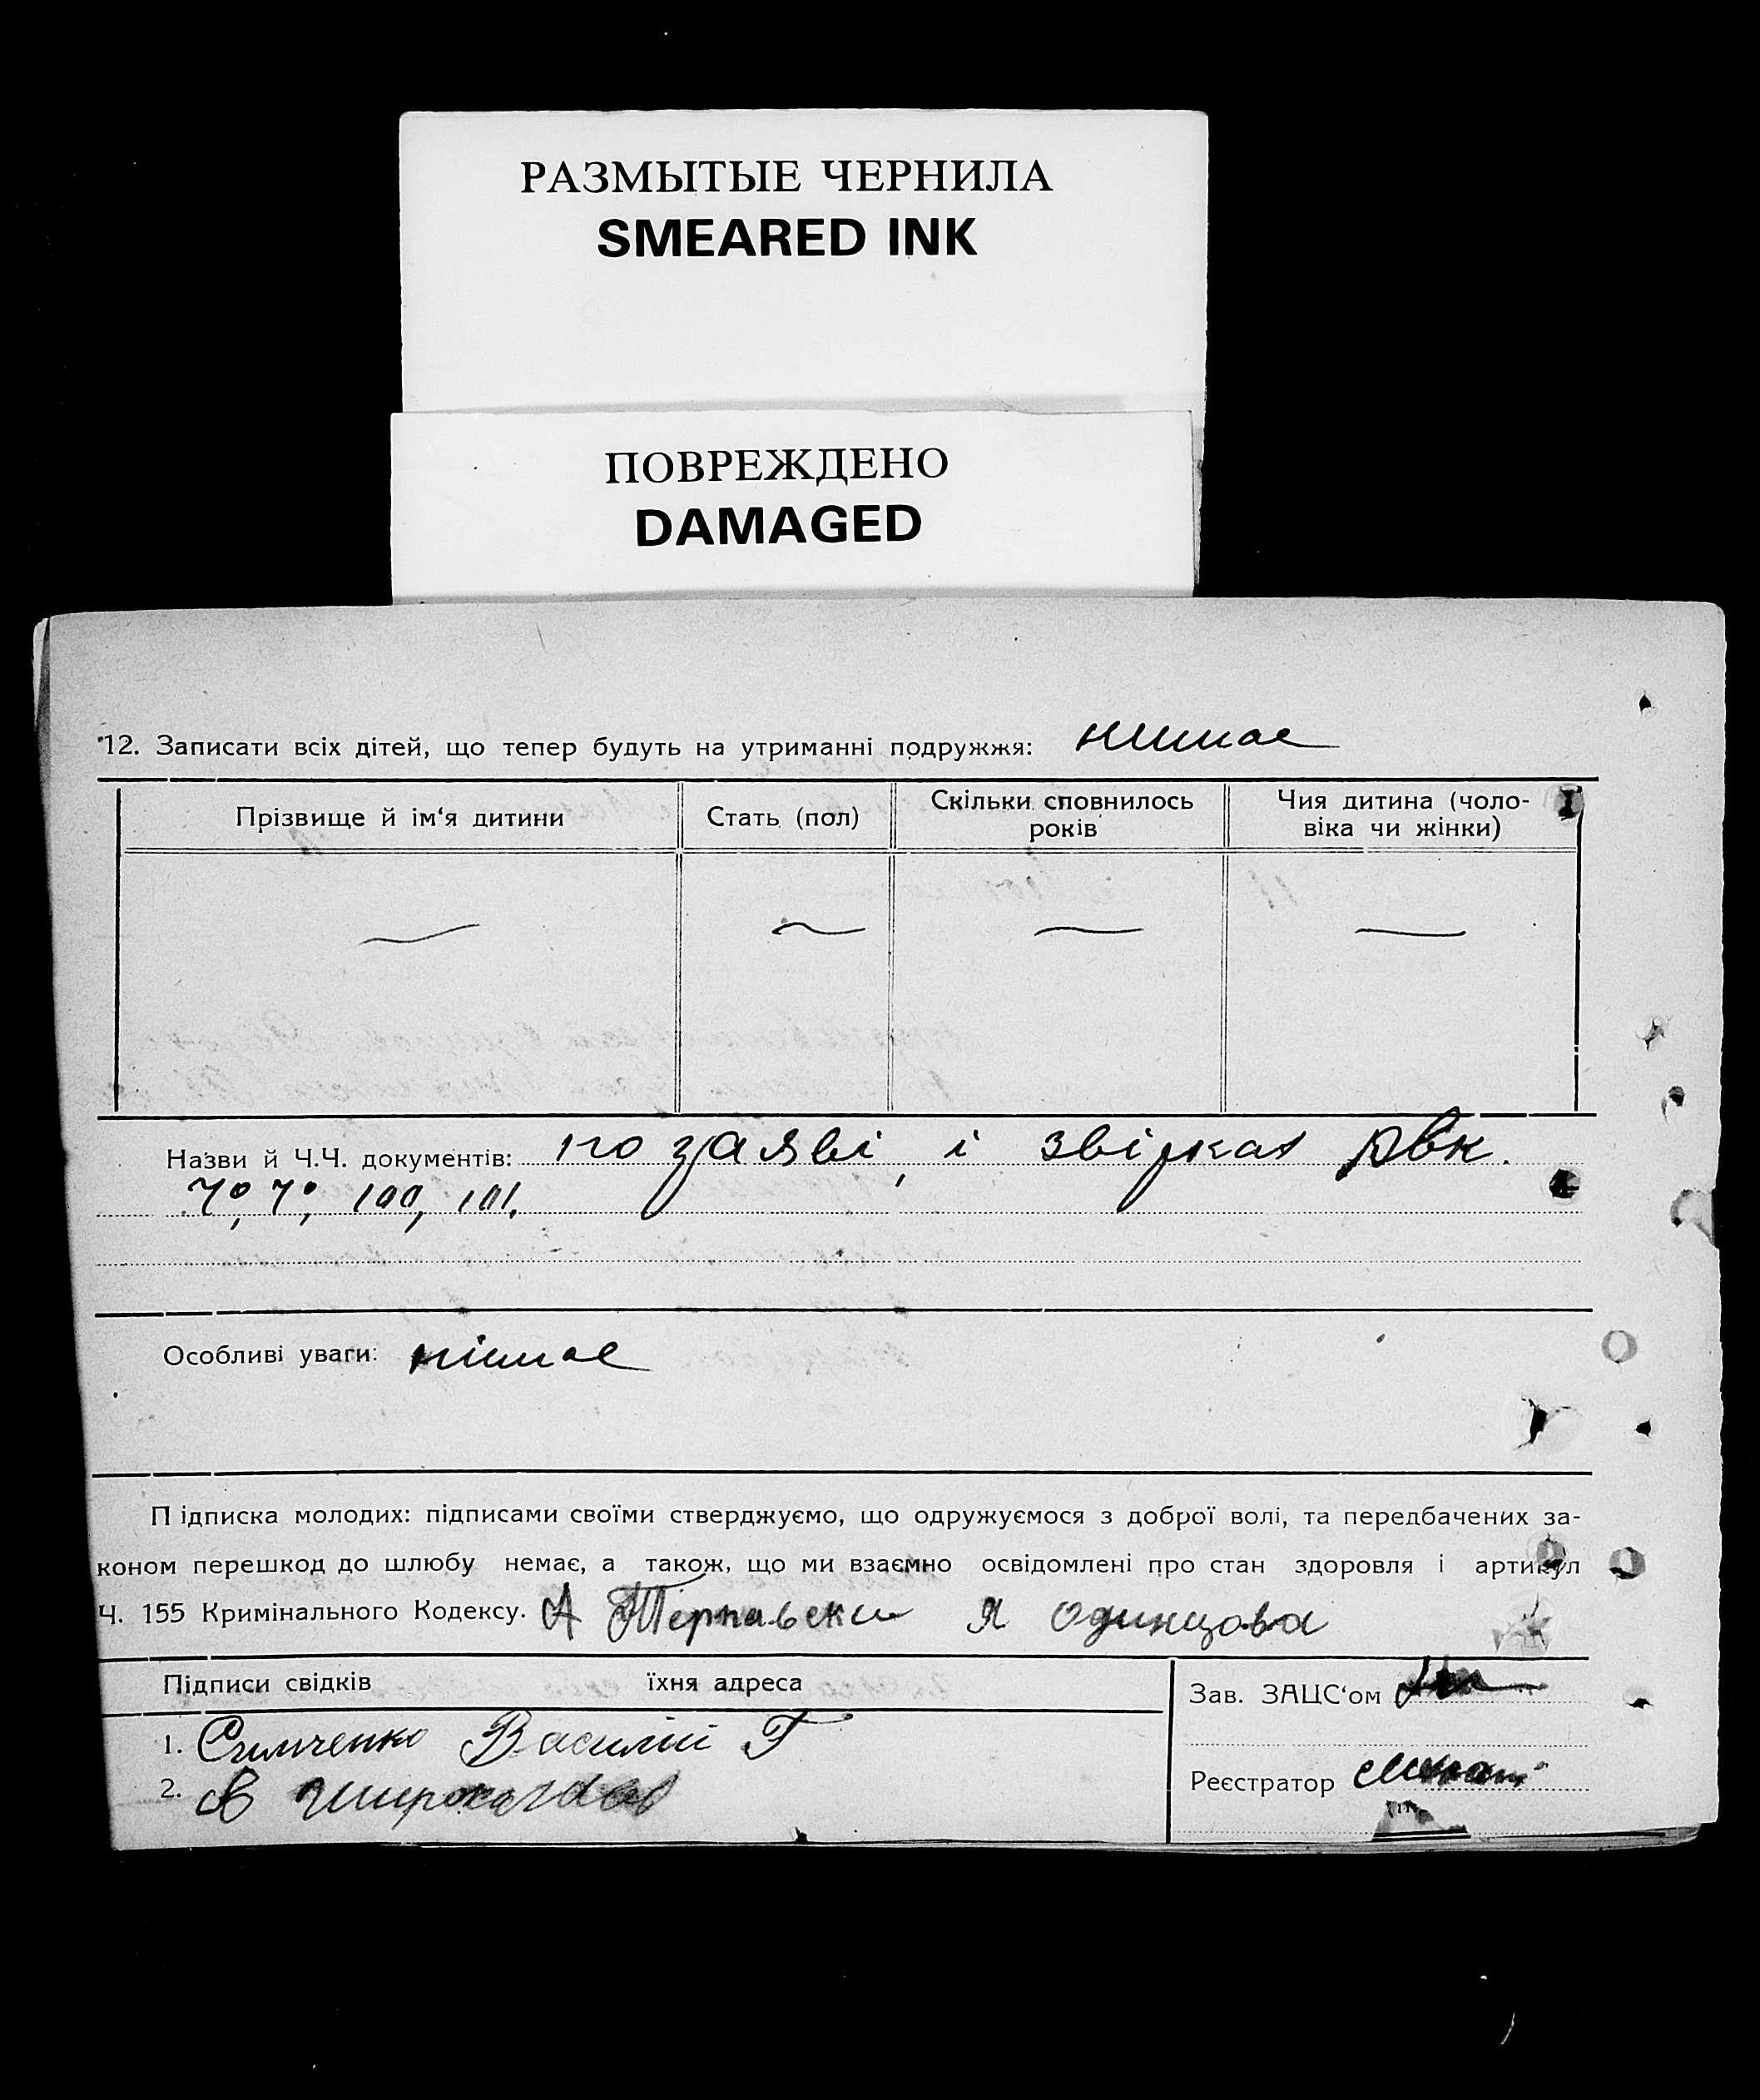 РАЗМЫТЫЕ ЧЕРНИЛА
SMEARED INK
ПОВРЕЖДЕНО
DAMAGED
12. Записати всіх дітей, що тепер будуть на утриманні подружжя: нимае
Прізвище й ім‘я дитини
Стать (пол)
Скільки сповнилось
років
Чия дитина (чоло-
віка чи жінки)
Назви й Ч.Ч. документів: по заяві, і звіркат РВК.
100, 101.
Особливі уваги: німає
Підписка молодих: підписами своїми стверджуємо, що одружуємося з доброї волі, та передбачених за-
коном перешкод до шлюбу немає, а також, що ми взаємно освідомлені про стан здоровля і артикул
Ч. 155 Кримінального Кодексу. А Я Одинцова
Підписи свідків їхня адреса
Зав. ЗАЦС‘ом
1. Симченко Василий Г
Реєстратор
2.